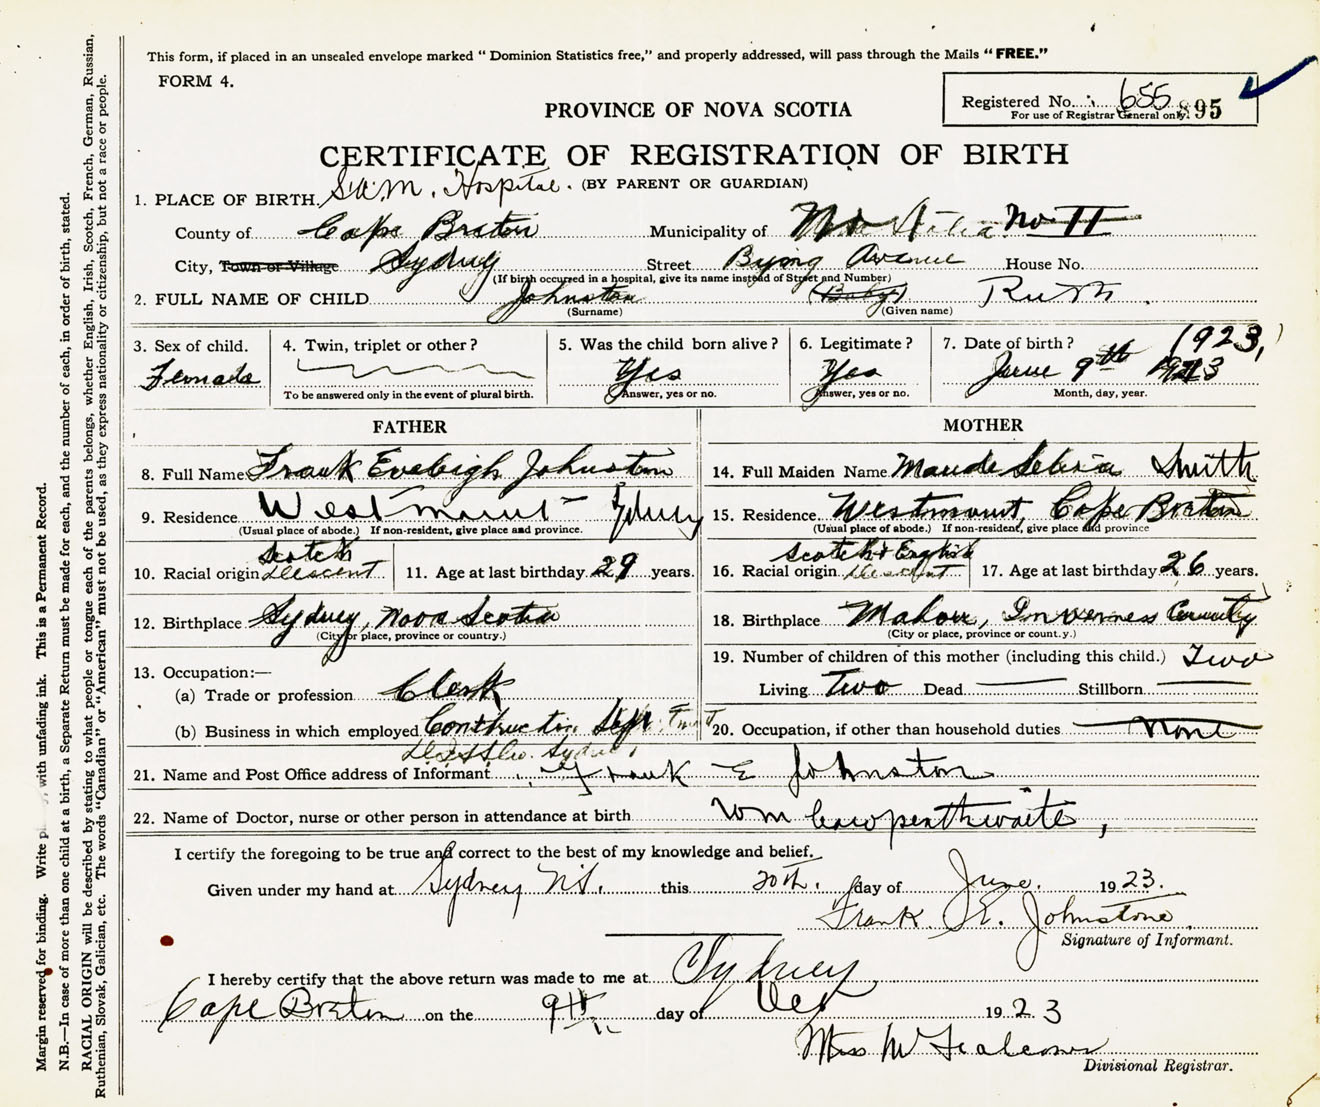 This form, if placed in an unsealed envelope marked "Dominion Statistics free," and properly addressed, will pass through the Mails "FREE."
FORM 4.
Registered No. 655 895
For use of Registrar General only.
PROVINCE OF NOVA SCOTIA
CERTIFICATE OF REGISTRATION OF BIRTH
(BY PARENT OR GUARDIAN)
1. PLACE OF BIRTH. Hospital.
County of Cape Breton Municipality of No 11
City, Town or Village Sydney Street Byng Avenue House No.
(If birth occurred in a hospital, give its name instead of Street and Number)
2. FULL NAME OF CHILD Johnston (Baby) Ruth
(Surname) (Given name)
3. Sex of child. 4. Twin, triplet or other? 5. Was the child born alive? 6. Legitimate? 7. Date of birth? 1923,
Female Yes Yes June 9th 1923
To be answered only in the event of plural birth. Answer, yes or no. Answer, yes or no. Month, day, year.
FATHER
8. Full Name Frank Eveleigh Johnston
9. Residence Westmount Sydney
(Usual place of abode.) If non-resident, give place and province.
10. Racial origin Scotch Descent 11. Age at last birthday 29 years.
12. Birthplace Sydney, Nova Scotia
(City or place, province or country.)
13. Occupation:—
(a) Trade or profession Clerk
(b) Business in which employed Construction Dept.
Sydney
MOTHER
14. Full Maiden Name Maude Smith
15. Residence Westmount, Cape Breton
(Usual place of abode.) If non-resident, give place and province
16. Racial origin Scotch & English Descent 17. Age at last birthday 26 years.
18. Birthplace Mabou, Inverness County
(City or place, province or count.y.)
19. Number of children of this mother (including this child.) Two
Living Two Dead Stillborn
20. Occupation, if other than household duties None
21. Name and Post Office address of Informant Frank E Johnston
22. Name of Doctor, nurse or other person in attendance at birth Wm Cowperthwaite,
I certify the foregoing to be true and correct to the best of my knowledge and belief.
Given under my hand at Sydney N.S. this 20th. day of June. 1923.
Frank. E. Johnstone
Signature of Informant.
I hereby certify that the above return was made to me at Sydney
Cape Breton on the 9th day of 1923
Miss
Divisional Registrar.
Margin reserved for binding. Write with unfading ink. This is a Permanent Record.
N.B.—In case of more than one child at a birth, a Separate Return must be made for each, and the number of each, in order of birth, stated.
RACIAL ORIGIN will be described by stating to what people or tongue each of the parents belongs, whether English, Irish, Scotch, French, German, Russian,
Ruthenian, Slovak, Galician, etc. The words "Canadian" or "American" must not be used, as they express nationality or citizenship, but not a race or people.